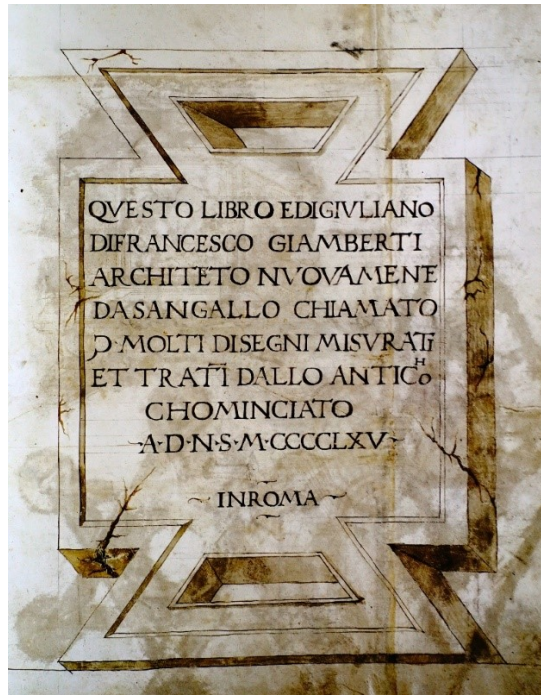 QVESTO LIBRO EDIGIVLIANO
DIFRANCESCO GIAMBERTI
ARCHITETO NVOVAMENE
DASANGALLO CHIAMATO
Ꝓ·MOLTI DISEGNI MISVRATI
ET TRATI DALLO ANTICHO
CHOMINCIATO
·A·D·N·S·M·CCCCLXV·
~ INROMA ~